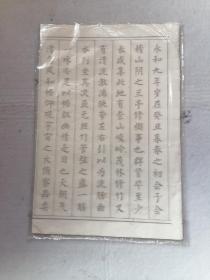 永和九年歲在癸丑暮春之初會于會
稽山陰之蘭亭修禊事也羣賢畢至少
長咸集此地有崇山峻嶺茂林修竹又
有清流激湍映帶左右引以為流觴曲
水列坐其次雖無絲竹管弦之盛一觴
一詠亦足以暢敘幽情是日也天朗氣
清惠風和暢仰觀宇宙之大俯察品類